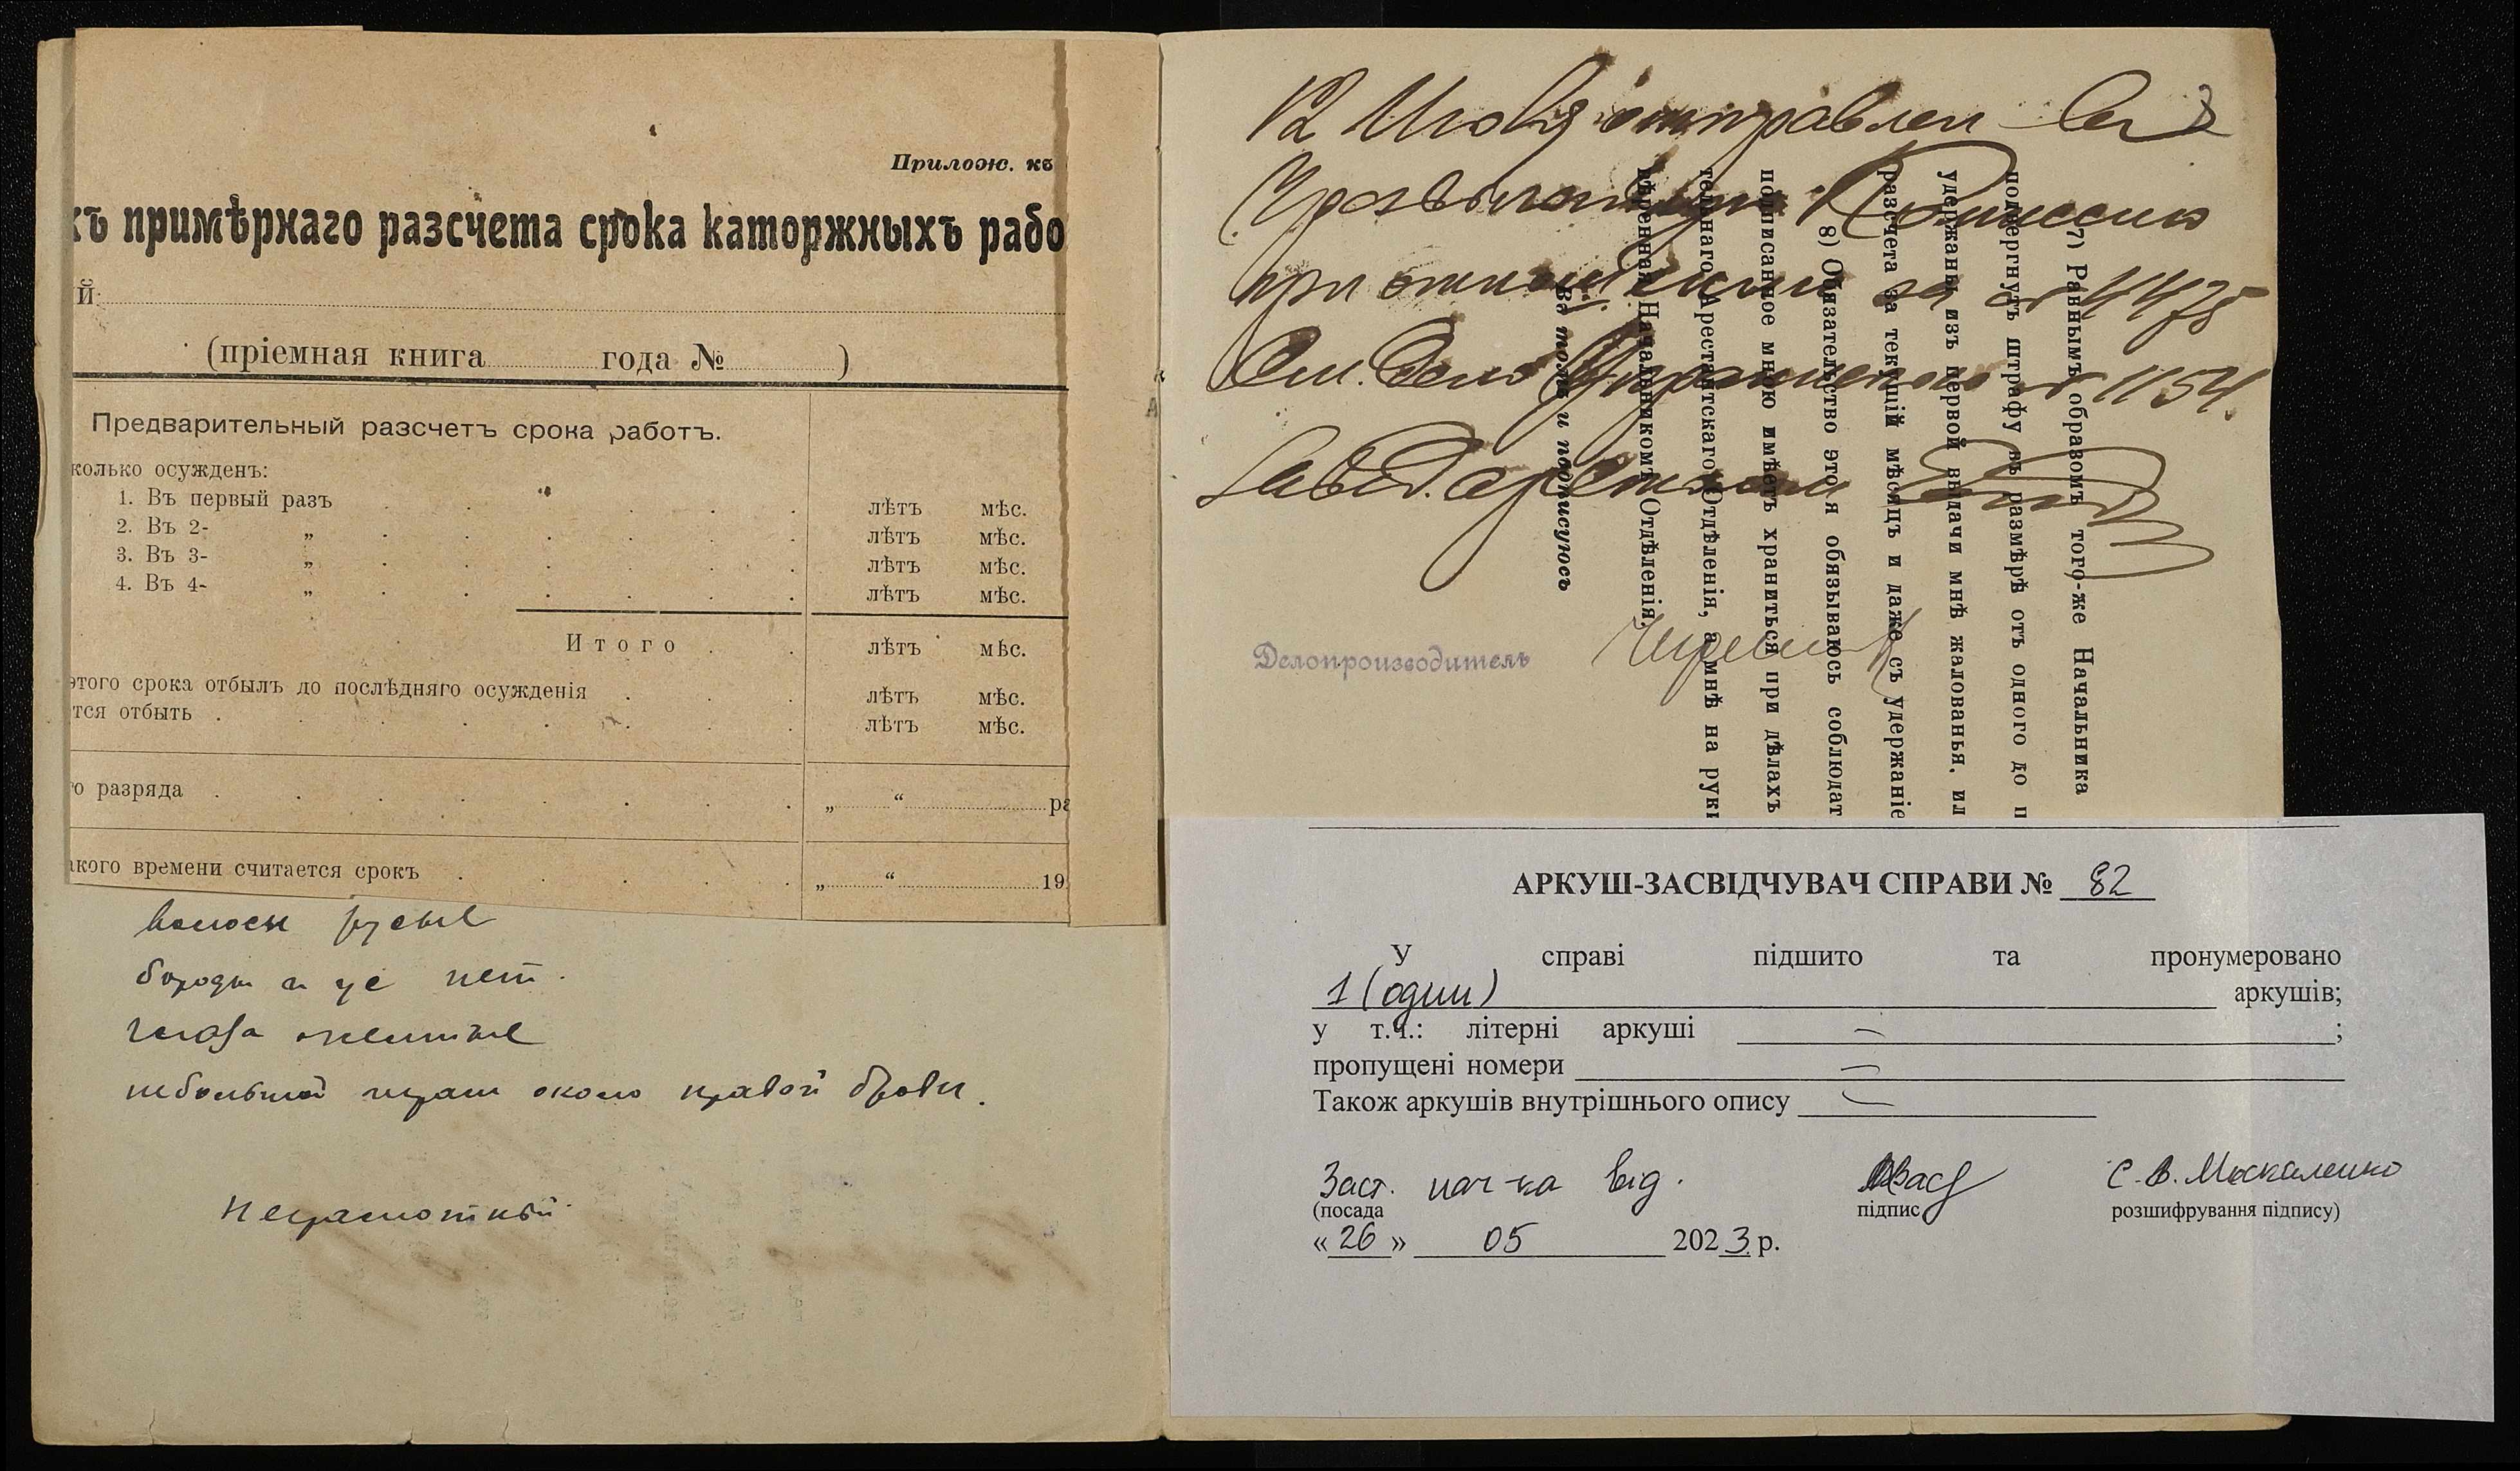 Прилож. къ
къ примѣрнаго разсчета срока каторжныхъ рабо
й
(пріемная книга года № )
Предварительный разсчетъ срока работъ.
колько осужденъ:
1. Въ первый разъ лѣтъ мѣс.
2. Въ 2- „ лѣтъ мѣс.
3. Въ 3- „ лѣтъ мѣс.
4. Въ 4- „ лѣтъ мѣс.
Итого лѣтъ мѣс.
этого срока отбылъ до послѣдняго осужденія лѣтъ мѣс.
тся отбыть лѣтъ мѣс.
го разряда „ “ ра
акого времени считается срокъ „ “ 19
волосы русые
бороды и ус нет.
глаза желтые
небольшой шрам около правой брови.
Неграмотный
12 Июля отправлен в
Чрезвычайную Комиссию
при отношении за № 4475
См. дело № 1154.
Завед. арестным
Делопроизводитель
7) Равнымъ образомъ того-же Начальника
подвергнуть штрафу въ размѣрѣ отъ одного до п
удержаны изъ первой выдачи мнѣ жалованья, ил
разсчета за текущій мѣсяцъ и даже съ удержаніе
8) Обязательство это я обязываюсь соблюдат
подписанное мною имѣетъ храниться при дѣлахъ
тельнаго Арестантскаго Отдѣленія, а мнѣ на руки
вѣренная Начальникомъ Отдѣленія,
Въ томъ и подписуюсь
АРКУШ-ЗАСВІДЧУВАЧ СПРАВИ № 82
У справі підшито та пронумеровано
1 (один) аркушів;
у т.ч.: літерні аркуші — ;
пропущені номери —
Також аркушів внутрішнього опису —
Заст. нач-ка від. С. В. Москаленко
(посада підпис розшифрування підпису)
« 26 » 05 2023 р.